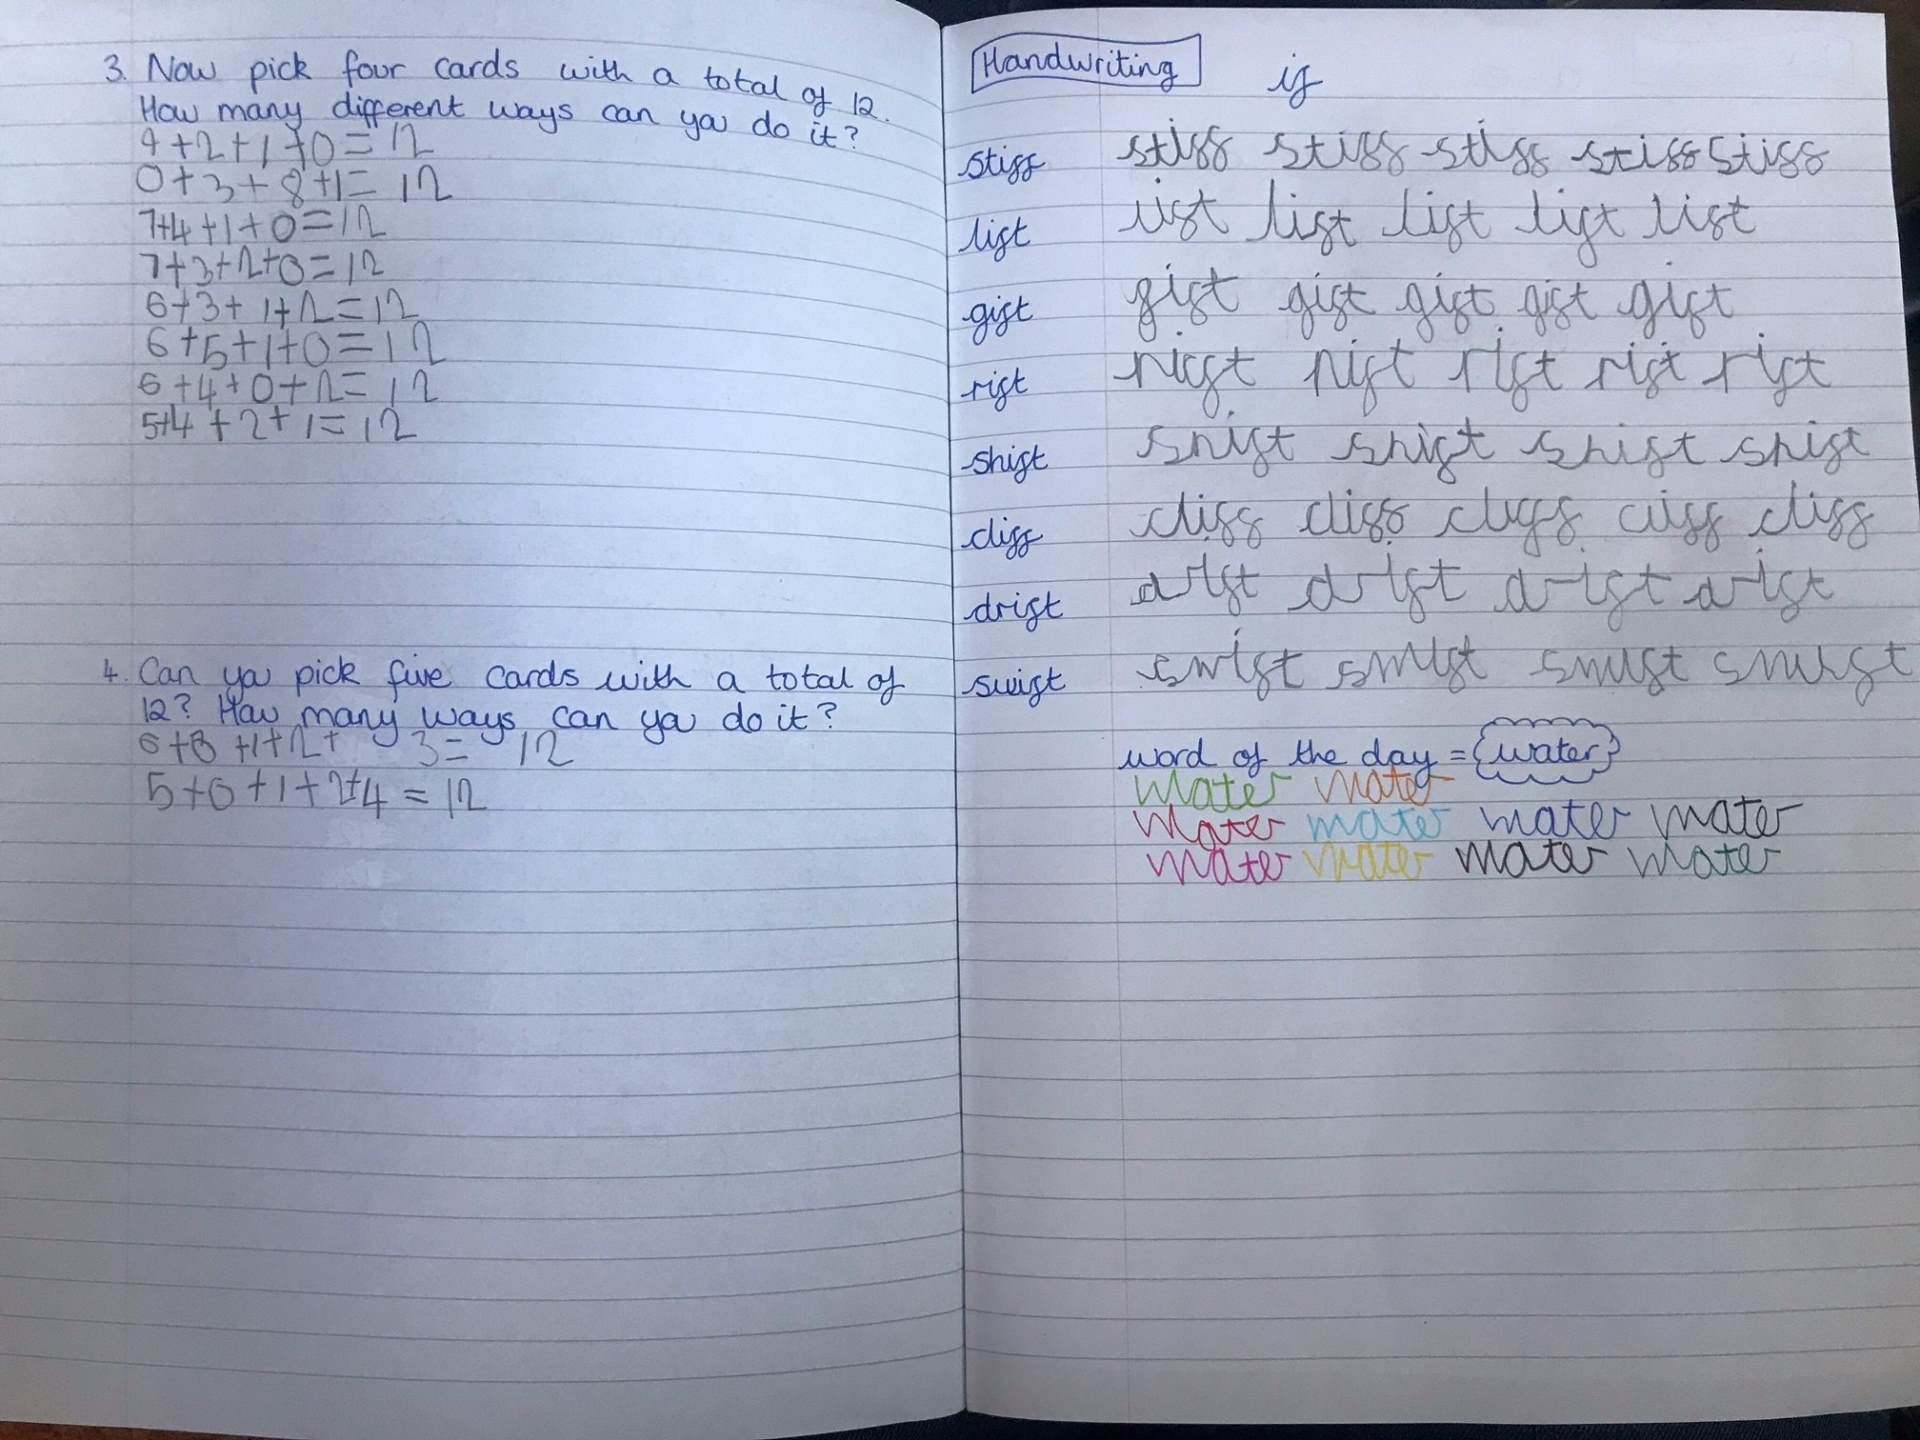 3. Now pick four cards with a total of 12.
How many different ways can you do it?
9+2+1+0=12
0+3+8+1=12
7+4+1+0=12
7+3+2+0=12
6+3+1+2=12
6+5+1+0=12
6+4+0+2=12
5+4+2+1=12
4. Can you pick five cards with a total of
12? How many ways can you do it?
6+0+1+2+ 3= 12
5+0+1+2+4=12
Handwriting if
stiff stiff stiff stiff stiff stiff
lift lift lift lift lift lift
gift gift gift gift gift gift
rift rift rift rift rift rift
shift shift shift shift shift
cliff cliff cliff cliff cliff cliff
drift drift drift drift drift
swift swift swift swift swift
word of the day = water
water water
water water water water
water water water water